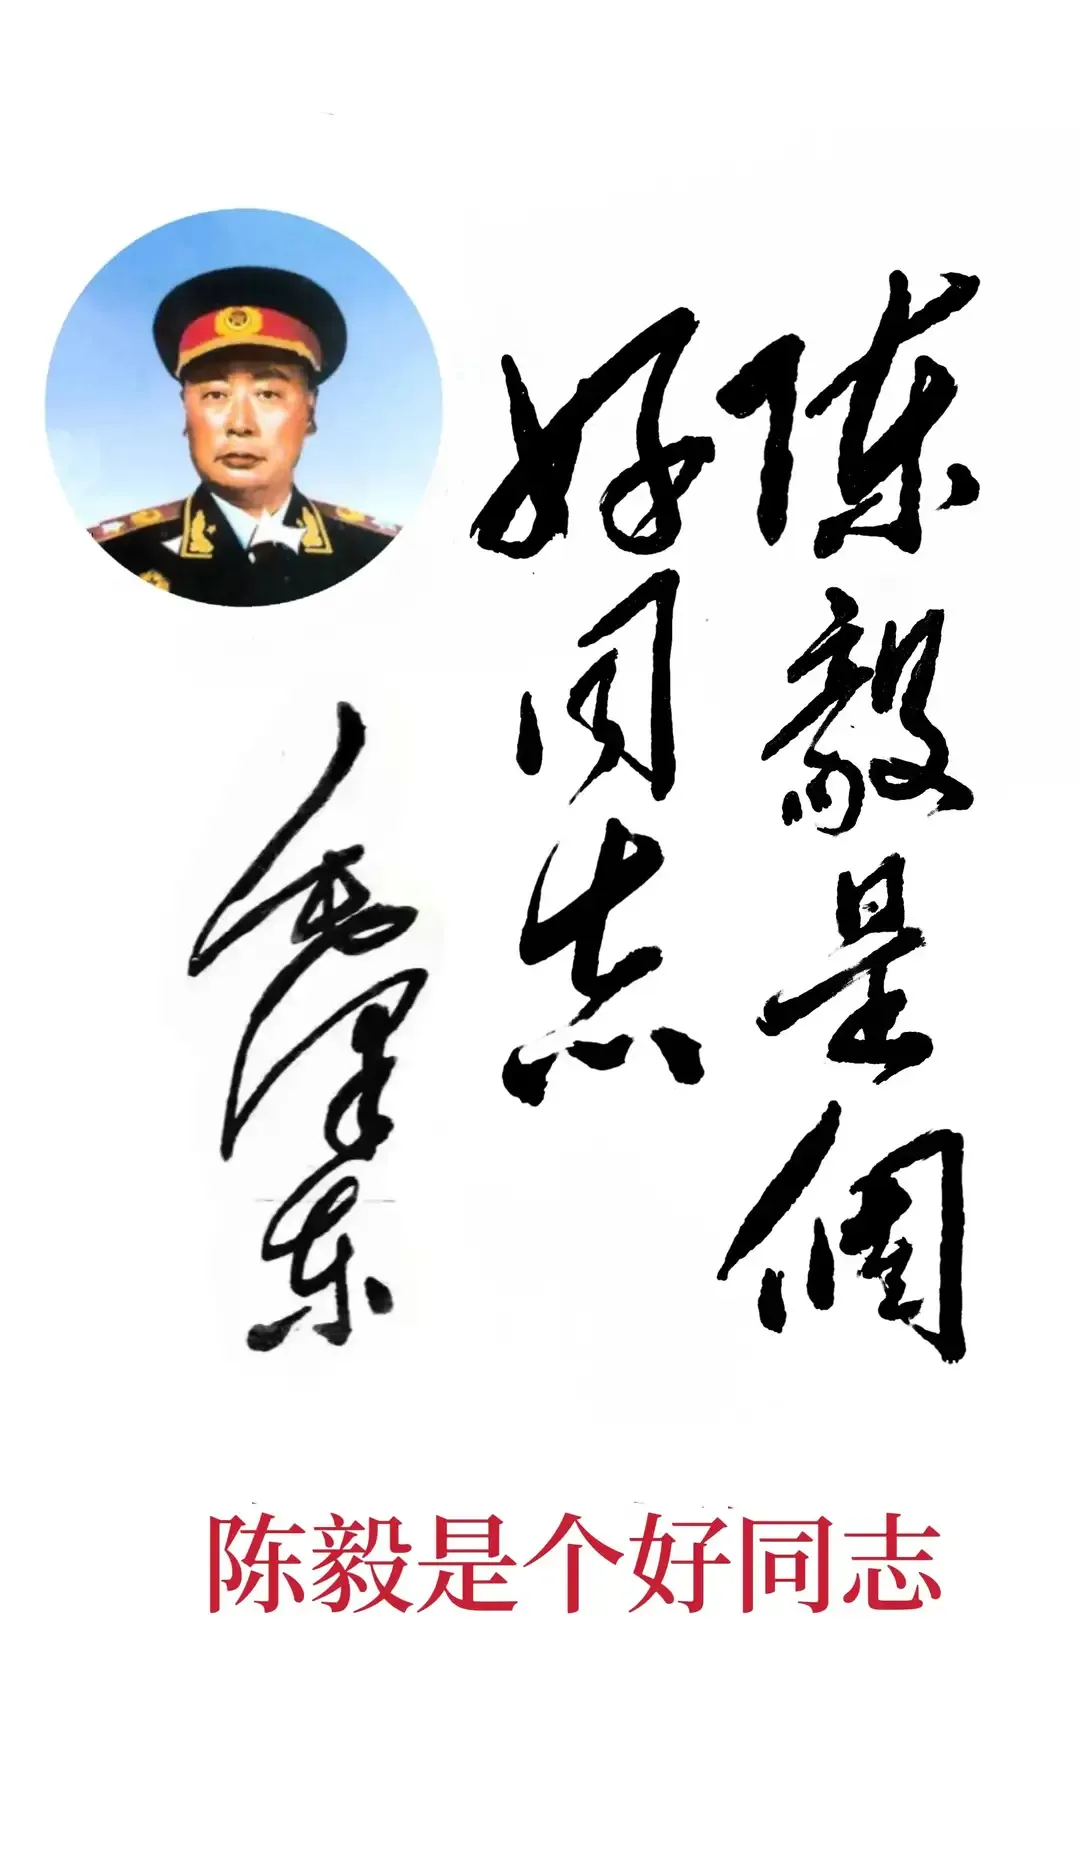 陳毅是個
好同志
毛澤东
陈毅是个好同志